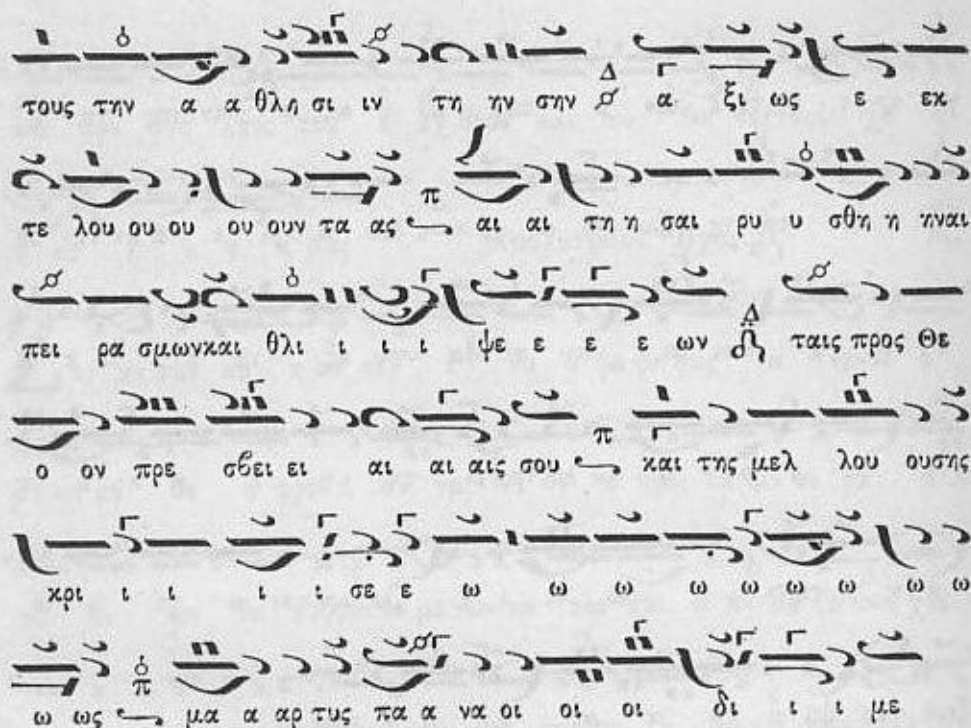 τους την α α θλη σι ιν τη ην σην Δ α ξι ως ε εκ
τε λου ου ου ου ουν τα ας π αι αι τη η σαι ρυ υ σθη η ηναι
πει ρα σμων και θλι ι ι ι ψε ε ε ε ων Δ ταις προς Θε
ο ον πρε σβει ει αι αι αις σου π και της μελ λου ουσης
κρι ι ι ι ι σε ε ω ω ω ω ω ω ω ω
ω ως π μα α αρ τυς πα α να οι οι οι δι ι ι με